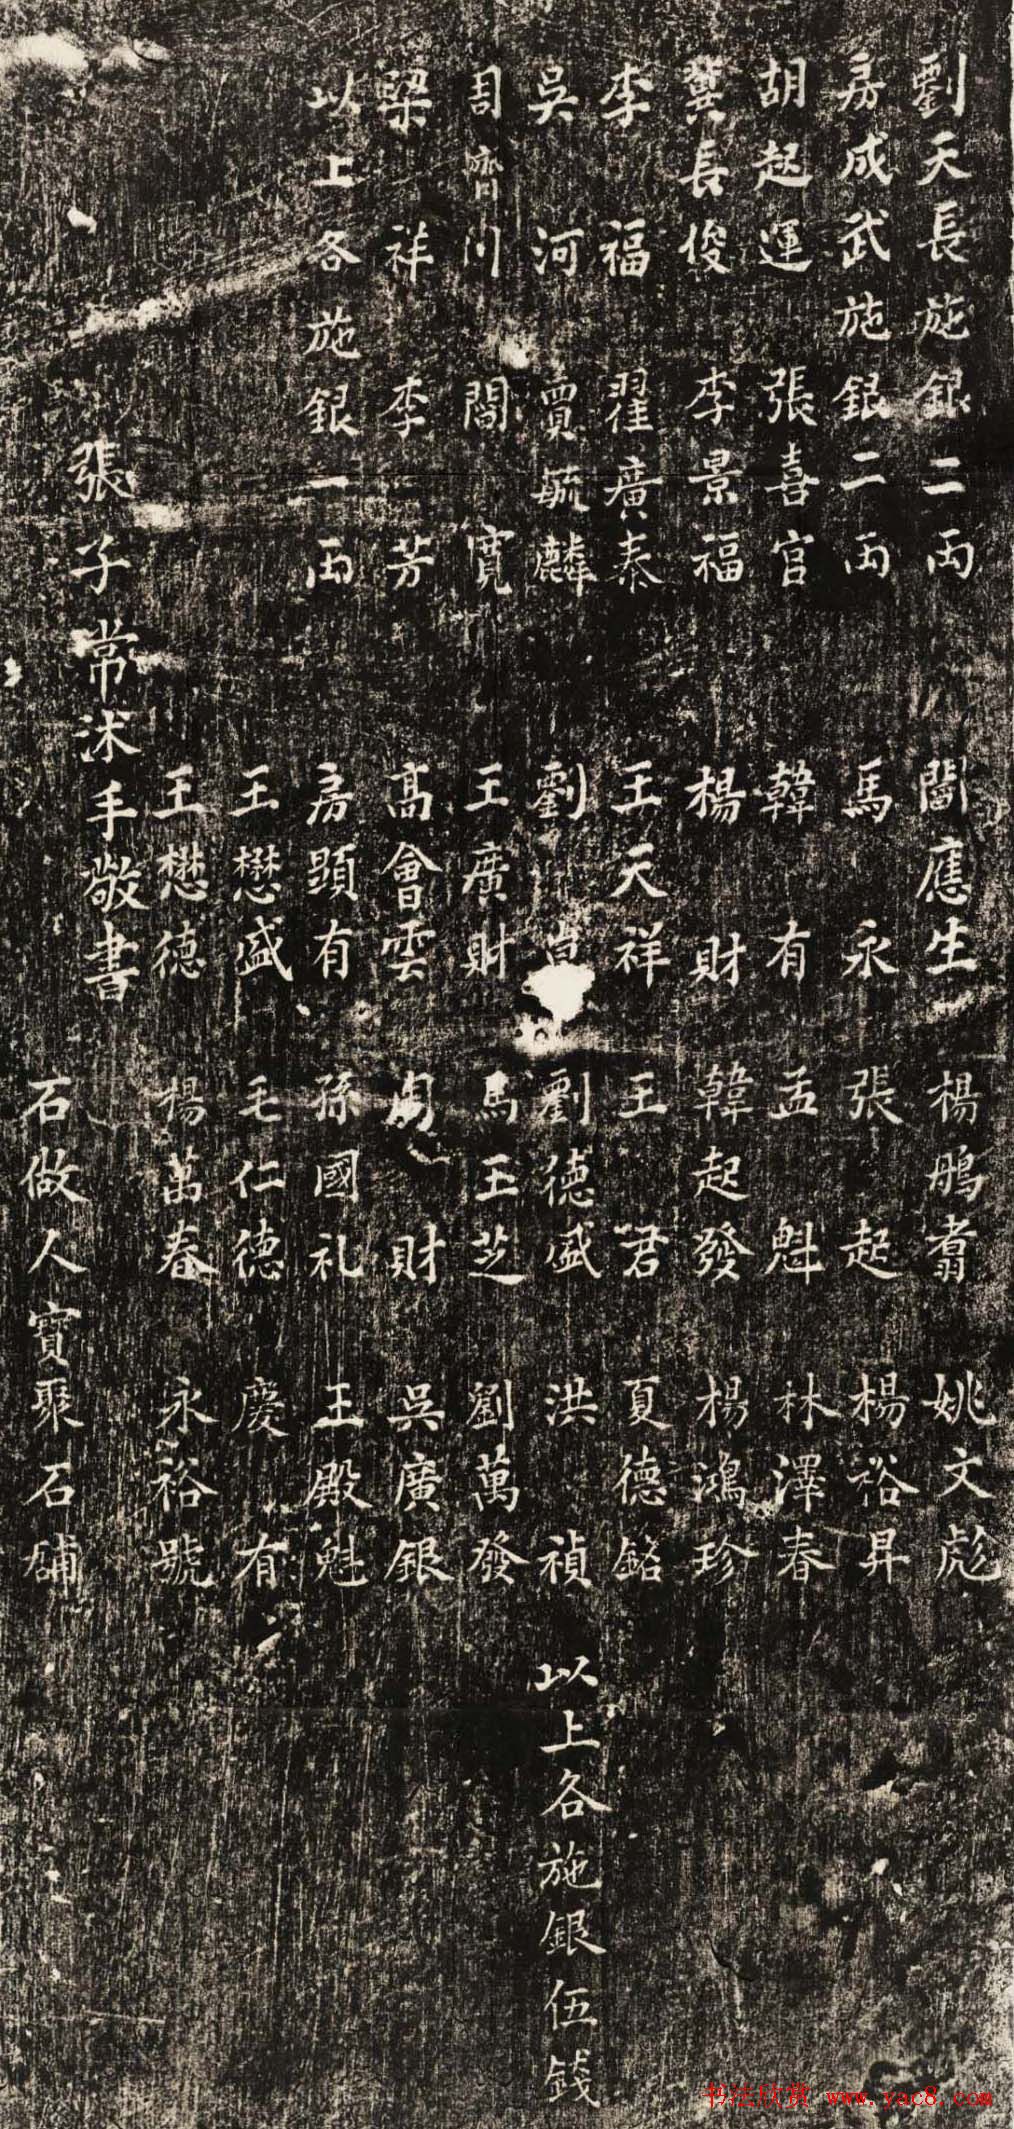 劉天長施銀二两 閻應生 楊鵬翥 姚文彪
房成武施銀二两 馬永 張起 楊裕昇
胡起運 張喜官 韓有 孟魁 林澤春
冀長俊 李景福 楊財 韓起發 楊鴻珍
李福 翟廣泰 王天祥 王君 夏德銘
吳河 賈毓麟 劉 劉德盛 洪禎 以上各施銀伍錢
周齊川 閻寬 王廣財 馬玉芝 劉萬發
梁祥 李芳 高會雲 周財 吳廣銀
以上各施銀一两 房顕有 孫國礼 王殿魁
王懋盛 毛仁德 慶有
王懋德 楊萬春 永裕號
張子常沐手敬書
石做人寳聚石舖
书法欣赏 www.yac8.com